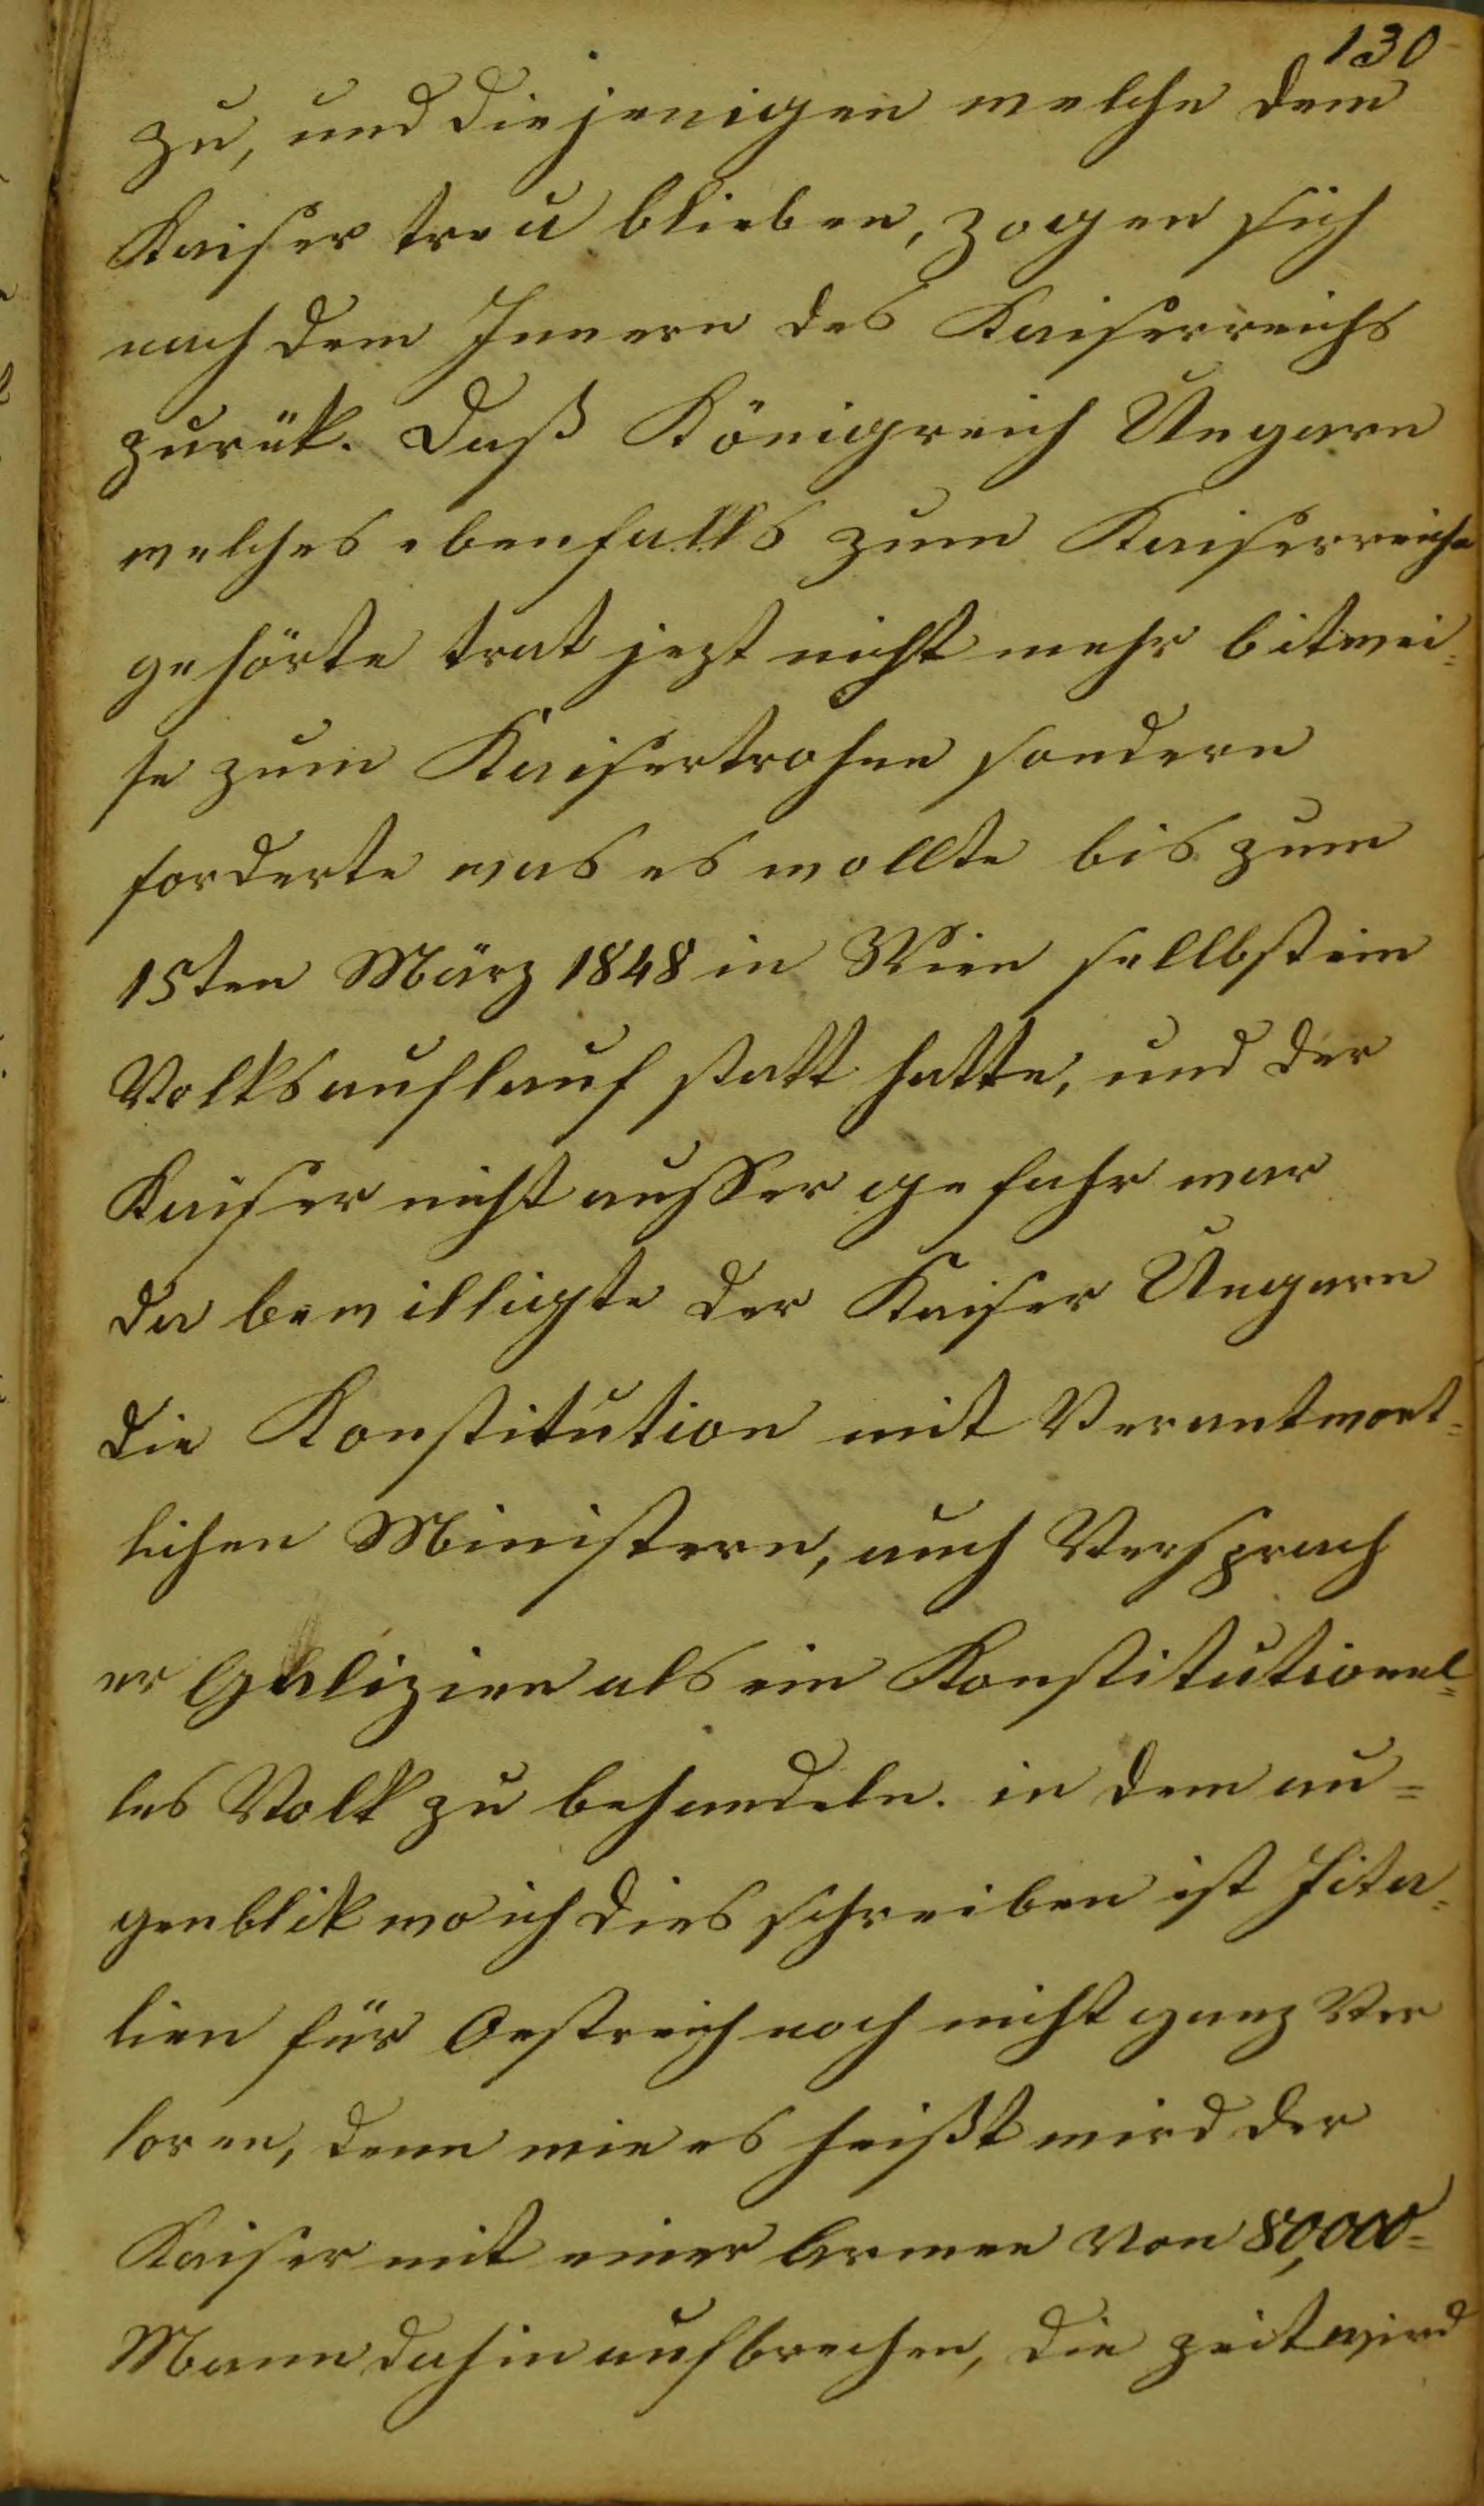 130
zu, und diejenigen welche dem
Kaiser treu blieben, zogen sich
nach dem Innern des Kaiserreichs
zurük. Daß Königreich Ungarn
welches ebenfalls zum Kaiserreiche
gehörte trat jezt nicht mehr bitwei=
se zum Kaisertrohne sondern
forderte was es wollte bis zum
15ten März 1848 in Wien sellbst ein
Volksauflauf statt hatte, und der
Kaiser nicht ausser gefahr war
da bewilligte der Kaiser Ungarn
die Konstitution mit Verantwort=
lichen Ministern, auch Versprach
er Galizien als ein Konstitutionel=
les Volk zu behandeln. in dem au=
genblik wo ich dies schreiben ist Jita=
lien für Oestreich noch nicht ganz Ver
loren, denn wie es heißt wird der
Kaiser mit einer Armee von 80,000=
Mann dahin aufbrechen, die zeit wird